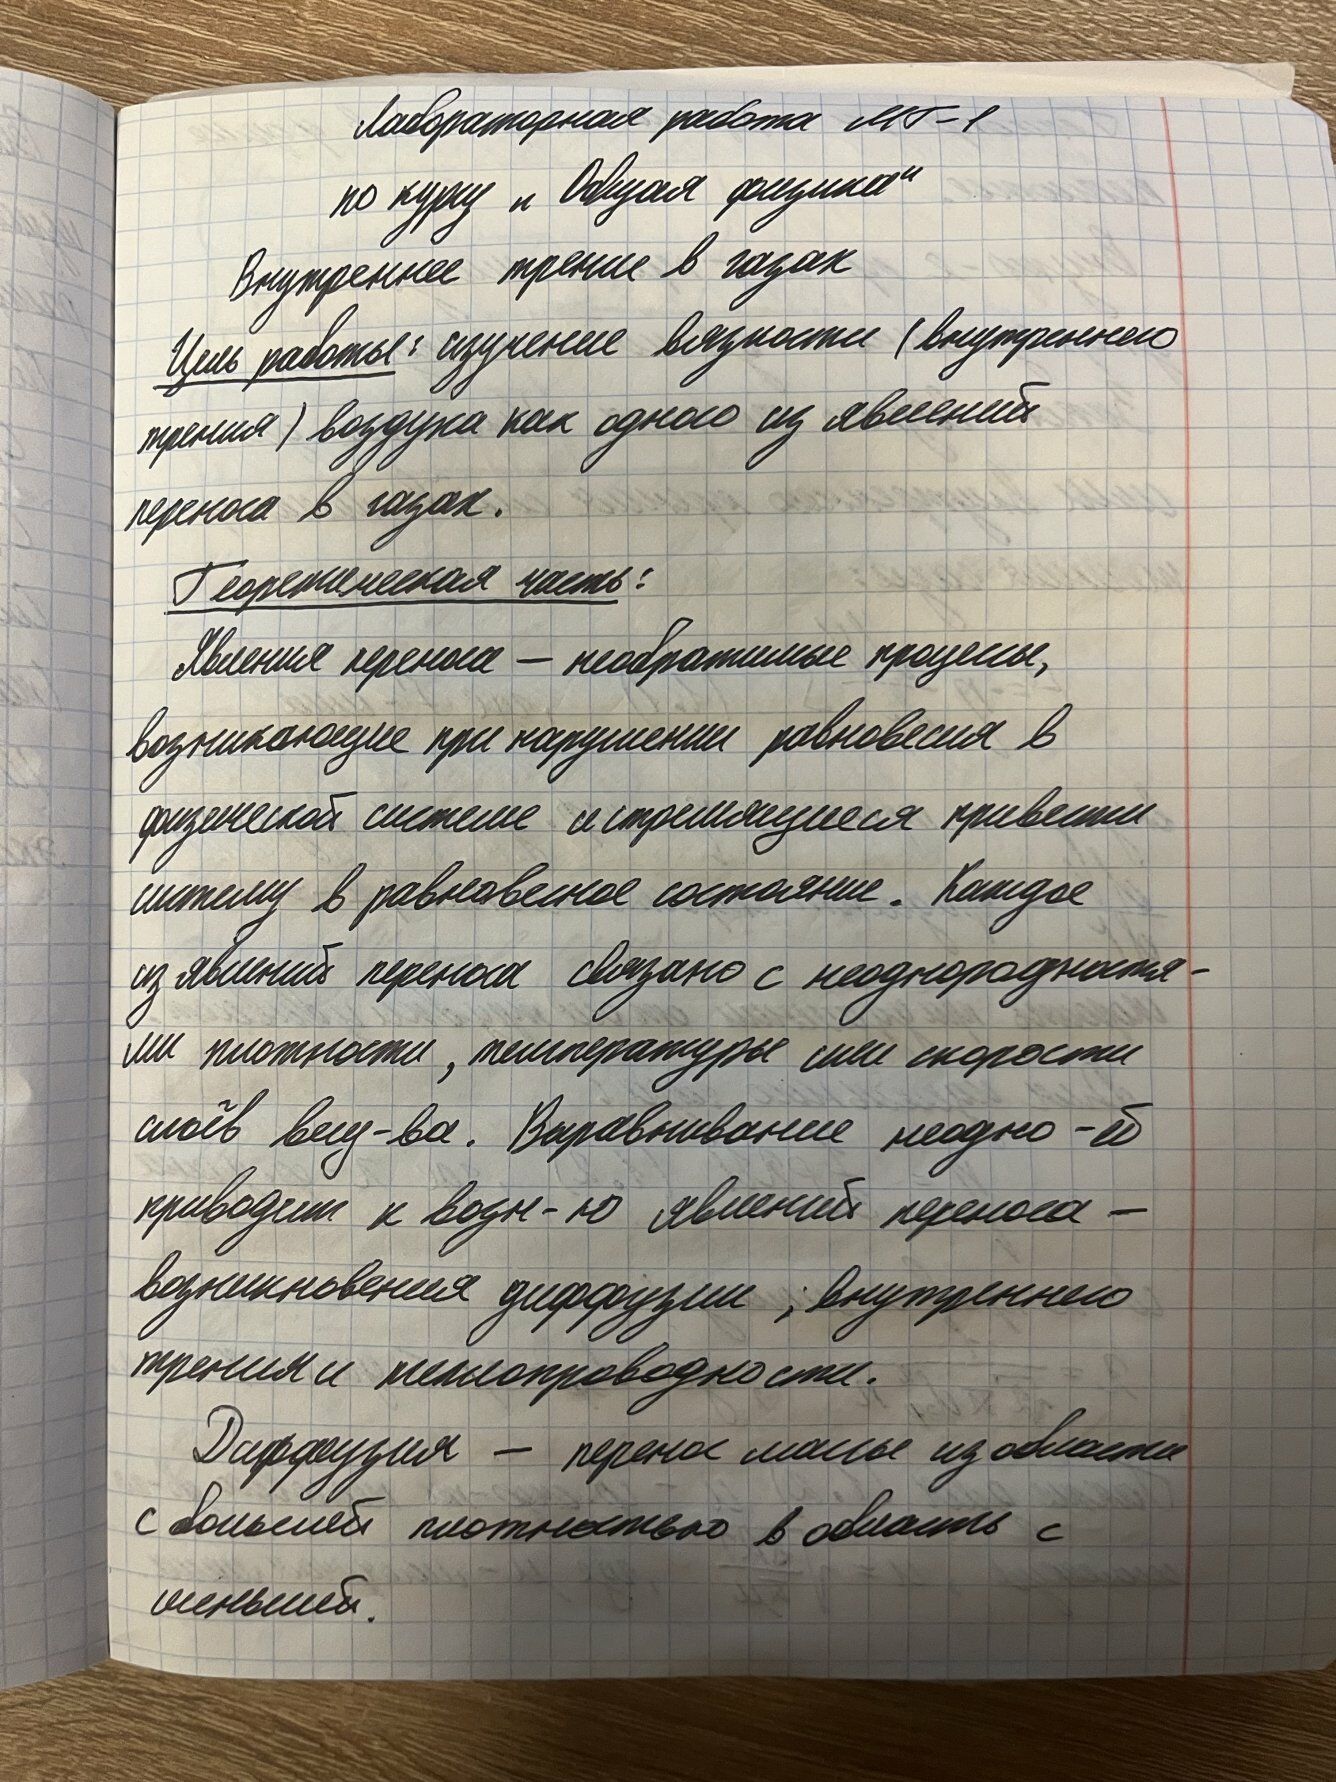 Лабораторная работа МТ-1
по курсу „Общая физика“
Внутреннее трение в газах
Цель работы: изучение вязкости (внутреннего
трения) воздуха как одного из явлений
переноса в газах.
Теоретическая часть:
Явления переноса — необратимые процессы,
возникающие при нарушении равновесия в
физической системе и стремящиеся привести
систему в равновесное состояние. Каждое
из явлений переноса связано с неоднородностя-
ми плотности, температуры или скорости
слоёв вещ-ва. Выравнивание неодно-ей
приводит к возн-ю явлений переноса —
возникновения диффузии, внутреннего
трения и теплопроводности.
Диффузия — перенос массы из области
с большей плотностью в область с
меньшей.